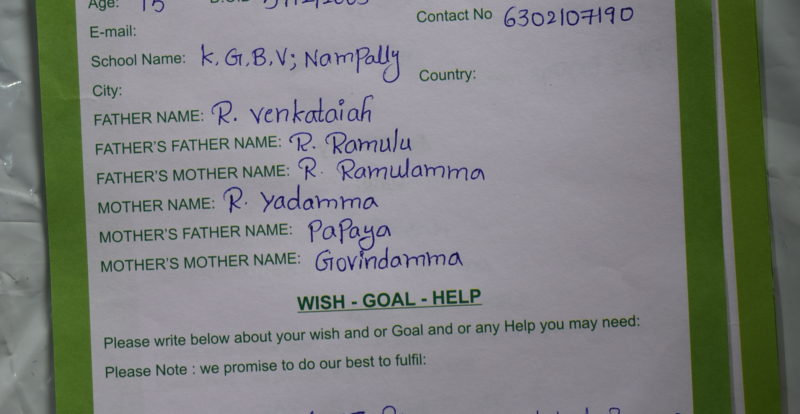 Age: 15
Contact No 6302107190
E-mail:
School Name: K.G.B.V; Nampally
Country:
City:
FATHER NAME: R. Venkataiah
FATHER'S FATHER NAME: R. Ramulu
FATHER'S MOTHER NAME: R. Ramulamma
MOTHER NAME: R. Yadamma
MOTHER'S FATHER NAME: Papaya
MOTHER'S MOTHER NAME: Govindamma
WISH - GOAL - HELP
Please write below about your wish and or Goal and or any Help you may need:
Please Note : we promise to do our best to fulfil: